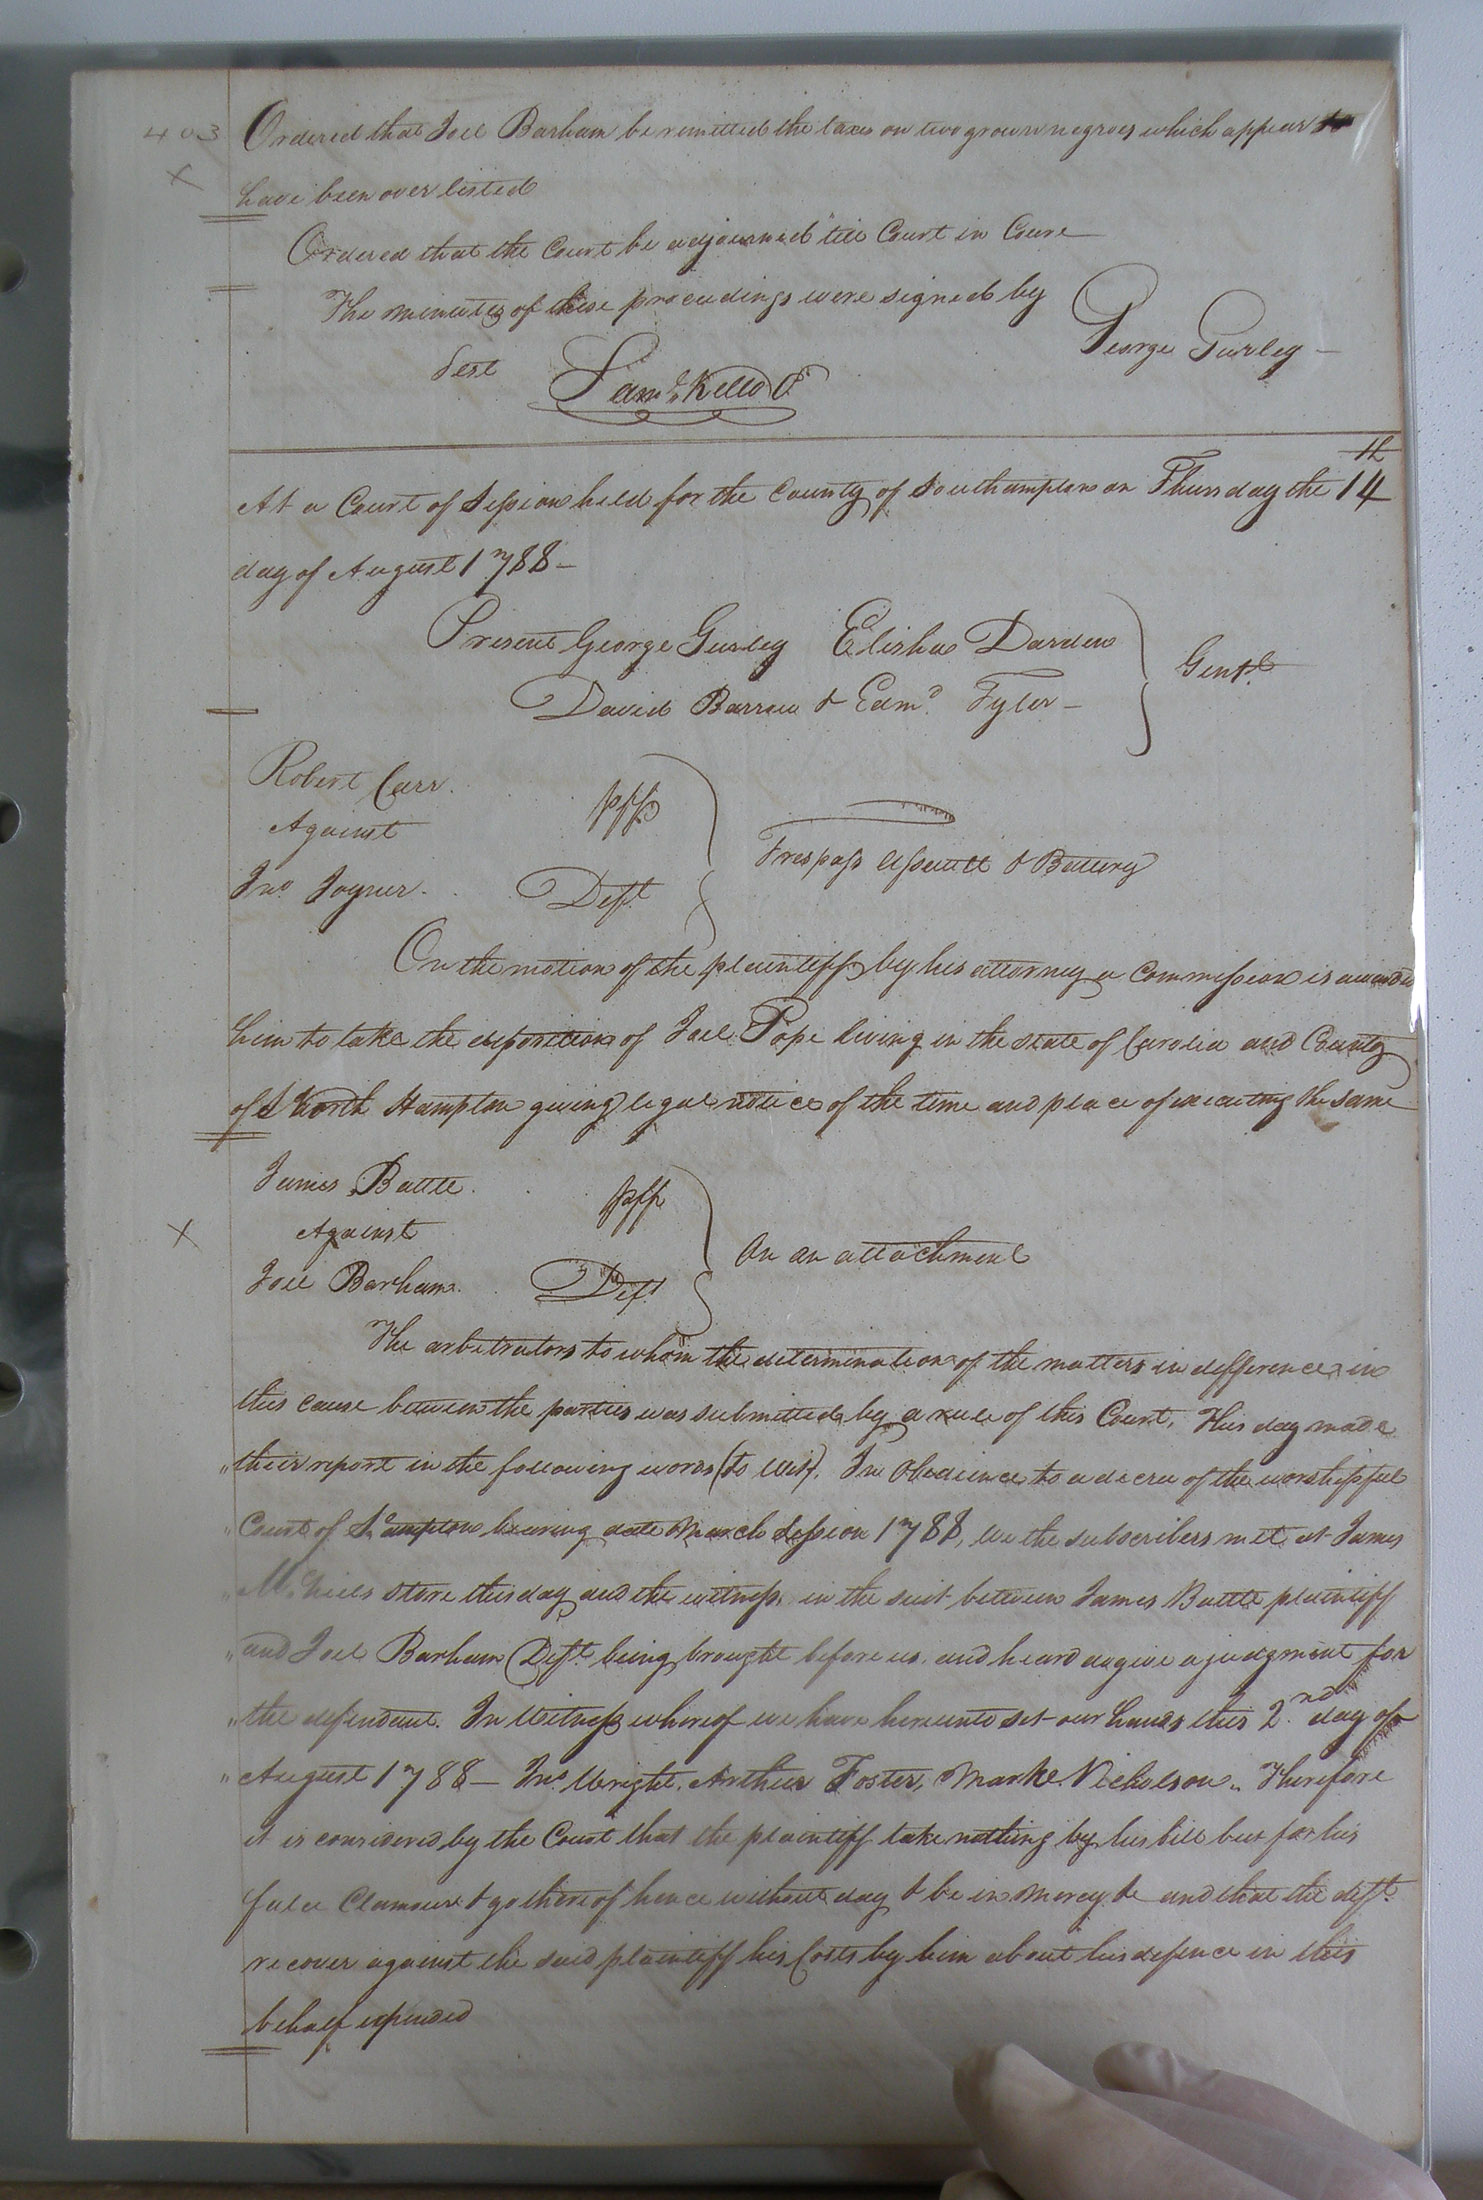 403
Ordered that Joel Barham be remitted the taxes on two grown negroes which appear to
X
have been over listed
Ordered that the Court be adjourned till Court in Course
The minutes of these proceedings were signed by
George Gurley
Test Saml. Kello C
At a Court of Session held for the County of Southampton on Thursday the 14th
day of August 1788 —
Present George Gurley Elisha Darden
David Barrow & Edmd. Tyler — Gentl.
Robert Carr. plff
Against
Trespass Assault & Battery
Jno. Joyner. Deft
On the motion of the plaintiff by his attorney a Commission is awarded
him to take the deposition of Joel Pope living in the state of Carolia and County
of North Hampton giving legal notice of the time and place of executing the same
James Battle. plff
X
Against
On an attachment
Joel Barham. Deft
The arbitrators to whom the determination of the matters in difference in
this cause between the parties was submitted by a rule of this Court, This day made
" their report in the following words (to Wit). In Obedience to a decree of the worshipful
" Court of So. ampton bearing date March Session 1788, We the subscribers met at James
" Mc. store this day and the witness, in the suit between James Battle plaintiff
" and Joel Barham Deft. being brought before us, and heard do give a judgment for
" the defendant. In Witness whereof we have hereunto set our hands this 2nd day of
" August 1788 — Jno. Wright, Arthur Foster, Marke Nicholson " Therefore
it is considered by the Court that the plaintiff take nothing by his bill but for his
false Clamour & go thereof hence without day & be in mercy &c and that the deft.
recover against the said plaintiff his Costs by him about his defence in this
behalf expended